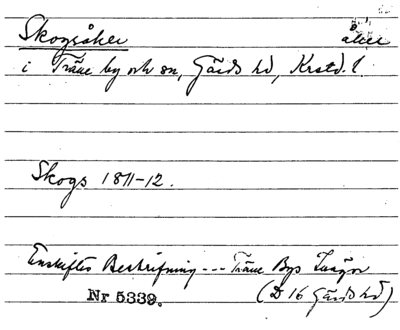 Skogsåker åker
i Träne by och sn, Gärds hd, Krstd. l
Skogs 1811-12.
Enskiftes Beskrifning --- Träne Bys Inägor
Nr 5339. (D 16 Gärds hd)